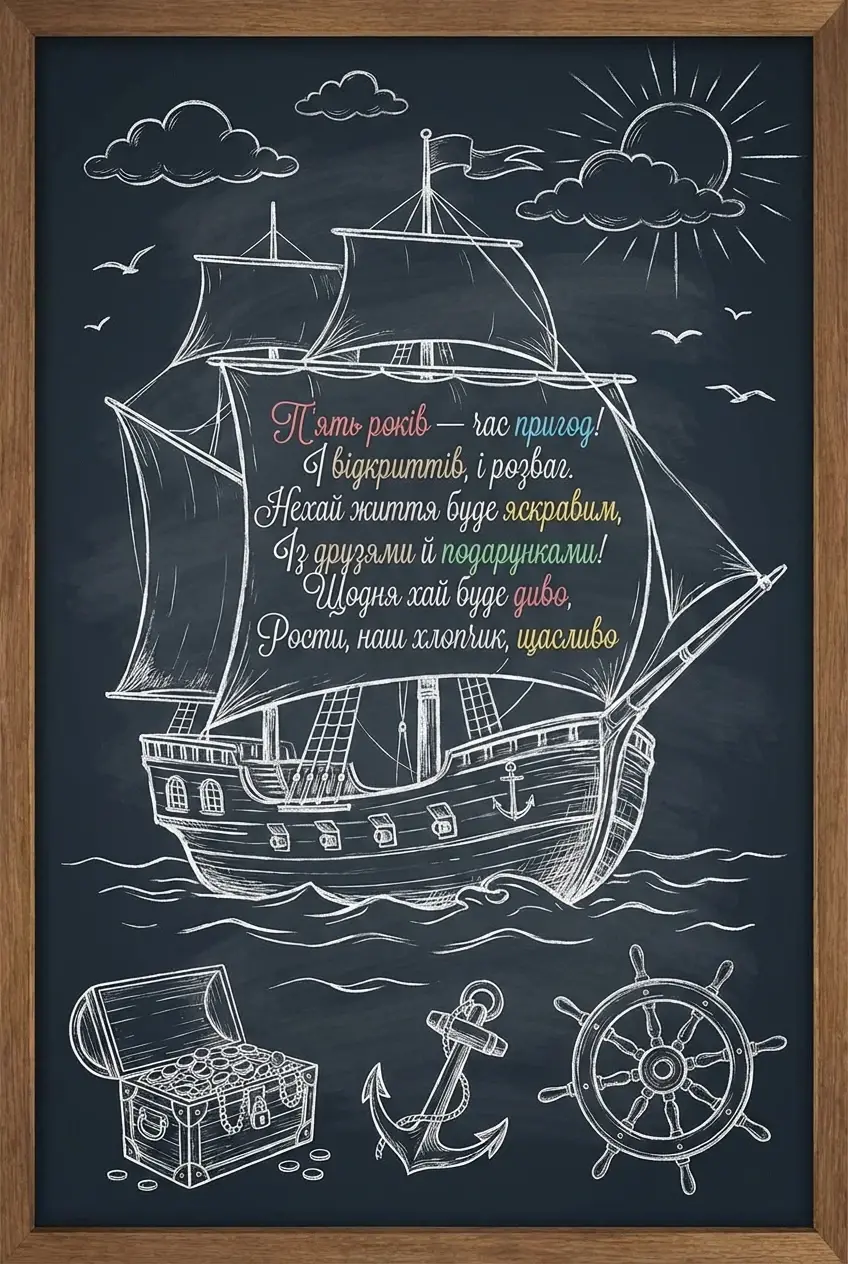 П'ять років — час пригод!
І відкриттів, і розваг.
Нехай життя буде яскравим,
Із друзями й подарунками!
Щодня хай буде диво,
Рости, наш хлопчик, щасливо